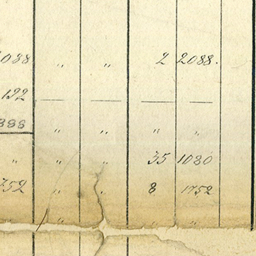 038 " " 2 2088.
132 — — — —
888 " " " "
" " " 35 1080
752 " " 8 1752
" " " "